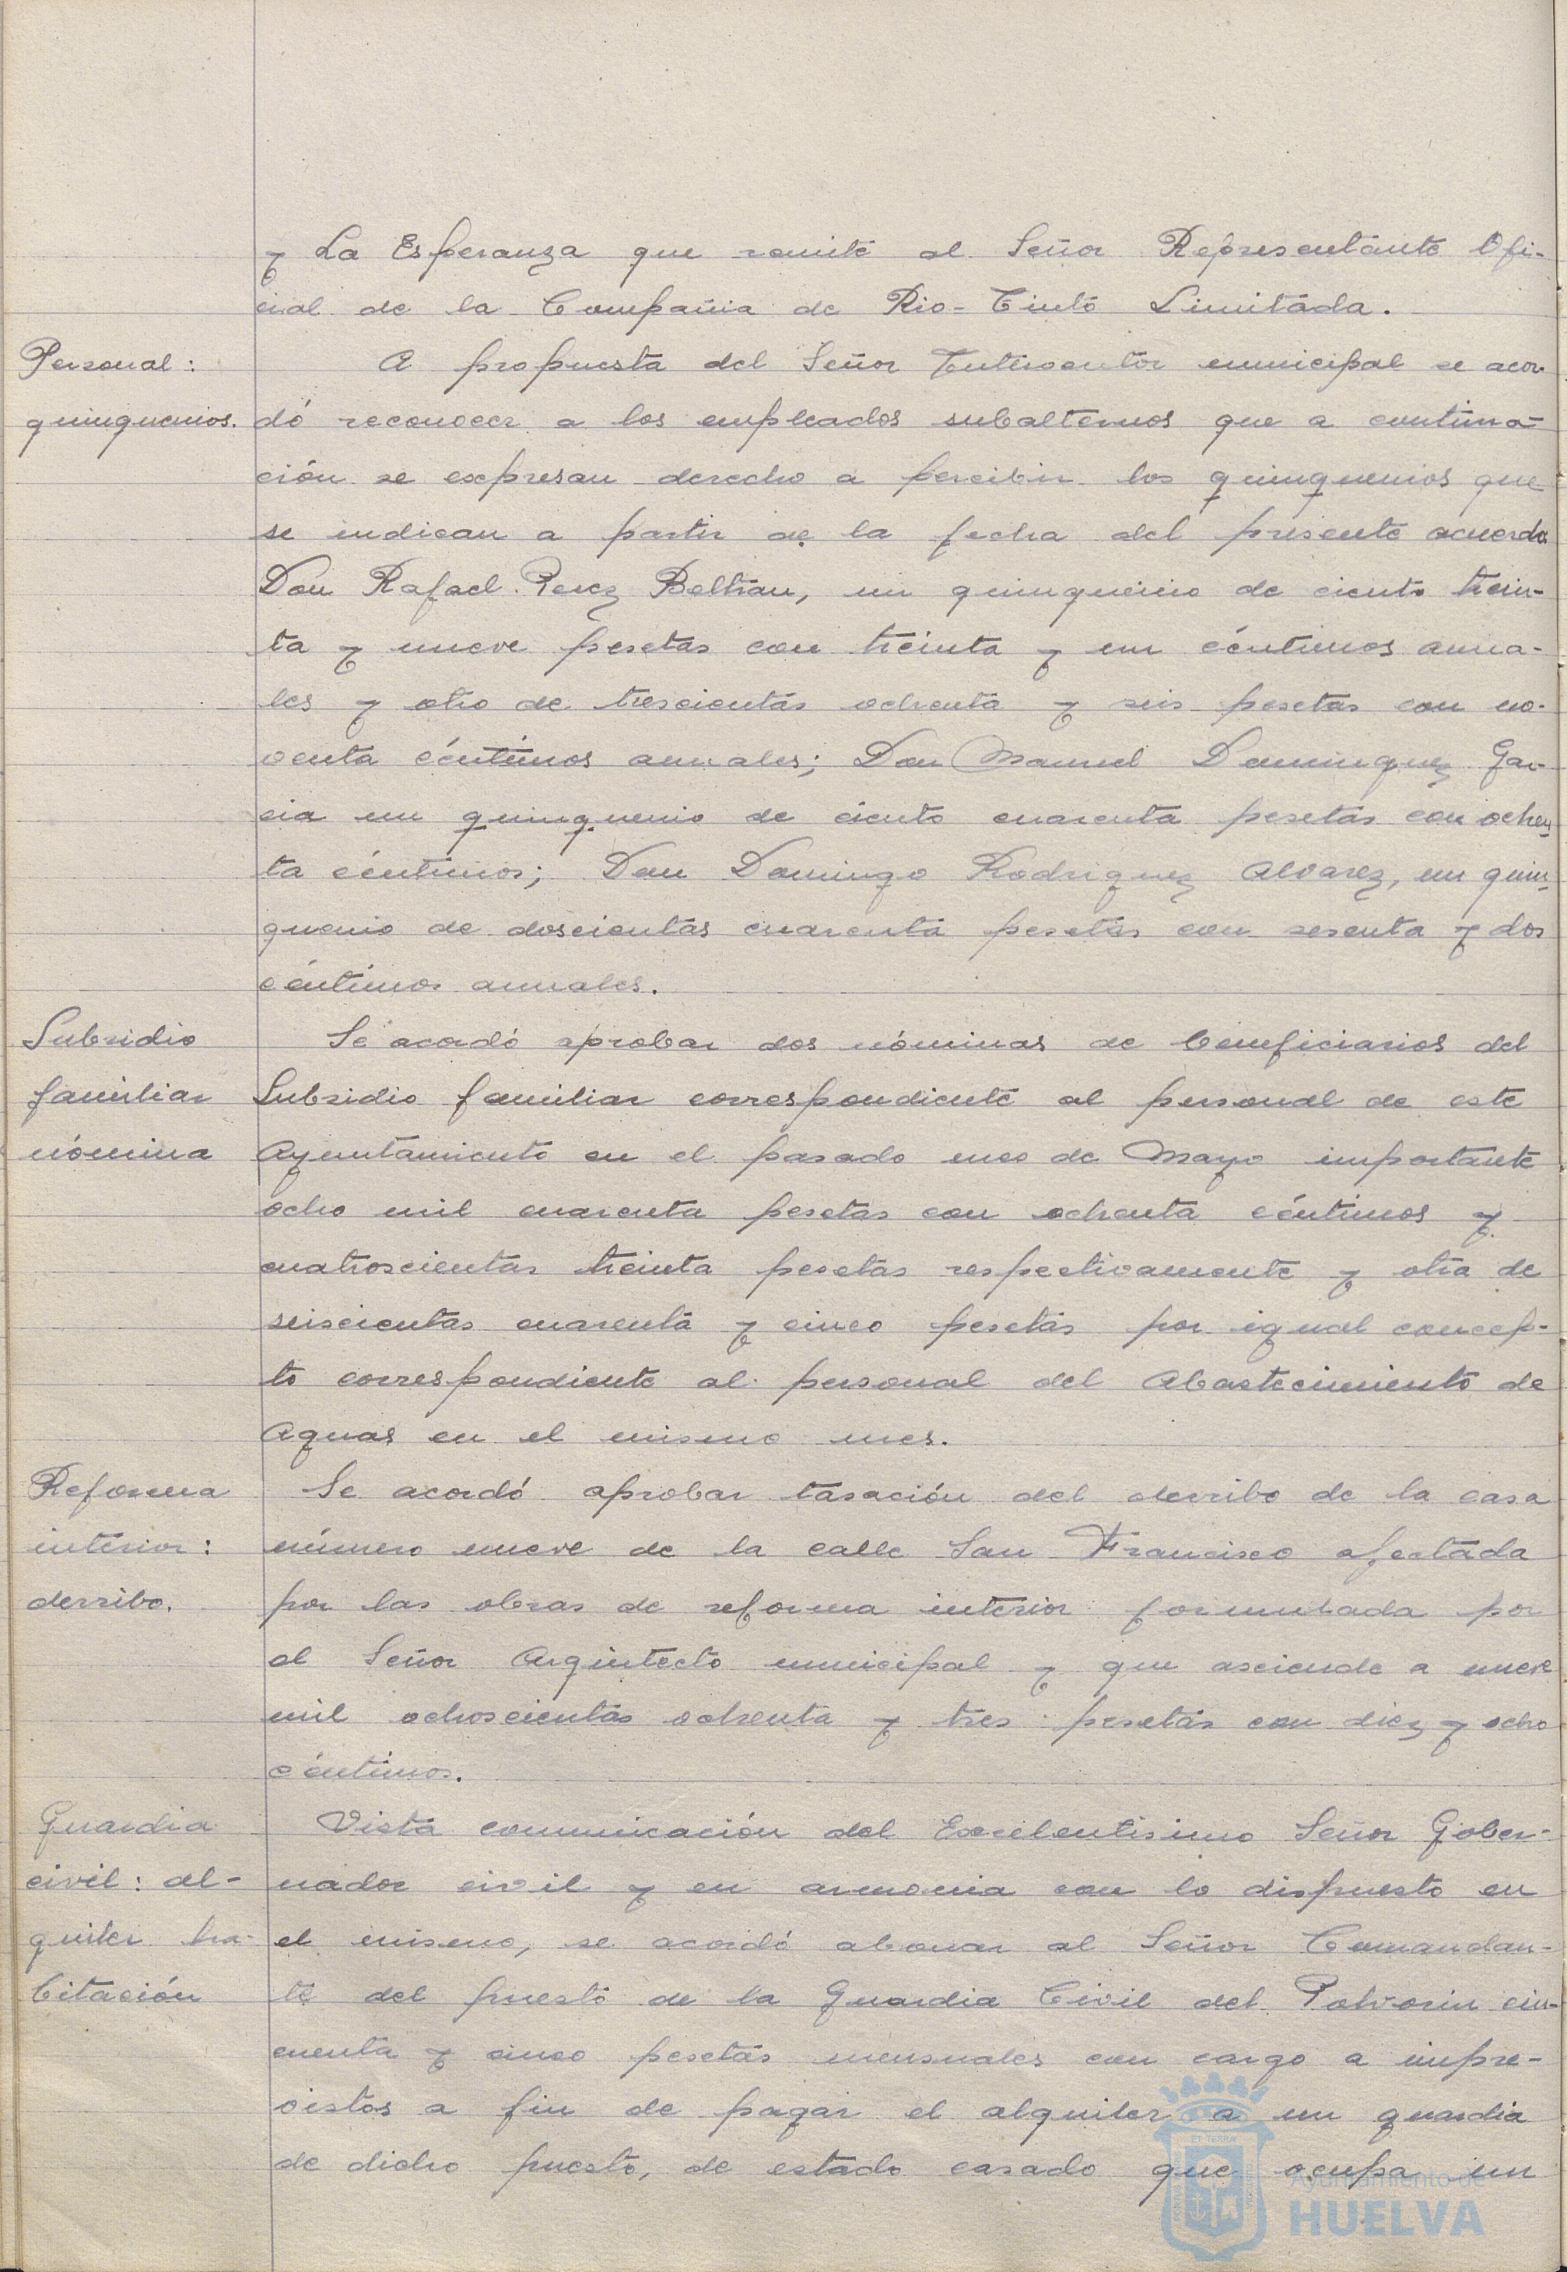 y La Esperanza que remite al Señor Representante Ofi-
cial de la Compañia de Rio-Tinto Limitada.
Personal:
quinquenios.
A propuesta del Señor Interventor municipal se acor-
dó reconocer a los empleados subalternos que a continua-
ción se expresan derecho a percibir los quinquenios que
se indican a partir de la fecha del presente acuerdo
Don Rafael Perez Beltran, un quinquenio de ciento trein-
ta y nueve pesetas con treinta y un céntimos anua-
les y otro de trescientas ochenta y seis pesetas con no-
venta céntimos anuales; Don Manuel Dominguez Gar-
cia un quinquenio de ciento cuarenta pesetas con ochen-
ta céntimos; Don Domingo Rodriguez Alvarez, un quin-
quenio de doscientas cuarenta pesetas con sesenta y dos
céntimos anuales.
Subsidio
familiar
nómina
Se acordó aprobar dos nóminas de beneficiarios del
Subsidio familiar correspondiente al personal de este
Ayuntamiento en el pasado mes de Mayo importante
ocho mil cuarenta pesetas con ochenta céntimos y
cuatroscientas treinta pesetas respectivamente y otra de
seiscientas cuarenta y cinco pesetas por igual concep-
to correspondiente al personal del Abastecimiento de
Aguas en el mismo mes.
Reforma
interior:
derribo.
Se acordó aprobar tasación del derribo de la casa
número nueve de la calle San Francisco afectada
por las obras de reforma interior formulada por
el Señor Arquitecto municipal y que asciende a nueve
mil ochoscientas ochenta y tres pesetas con diez y ocho
céntimos.
Guardia
civil: al-
quiler ha-
bitación
Vista comunicación del Excelentisimo Señor Gober-
nador civil y en armonia con lo dispuesto en
el mismo, se acordó abonar al Señor Comandan-
te del puesto de la Guardia Civil del Polvorin cin-
cuenta y cinco pesetas mensuales con cargo a impre-
vistos a fin de pagar el alquiler a un guardia
de dicho puesto, de estado casado que ocupa un
Ayuntamiento de
HUELVA